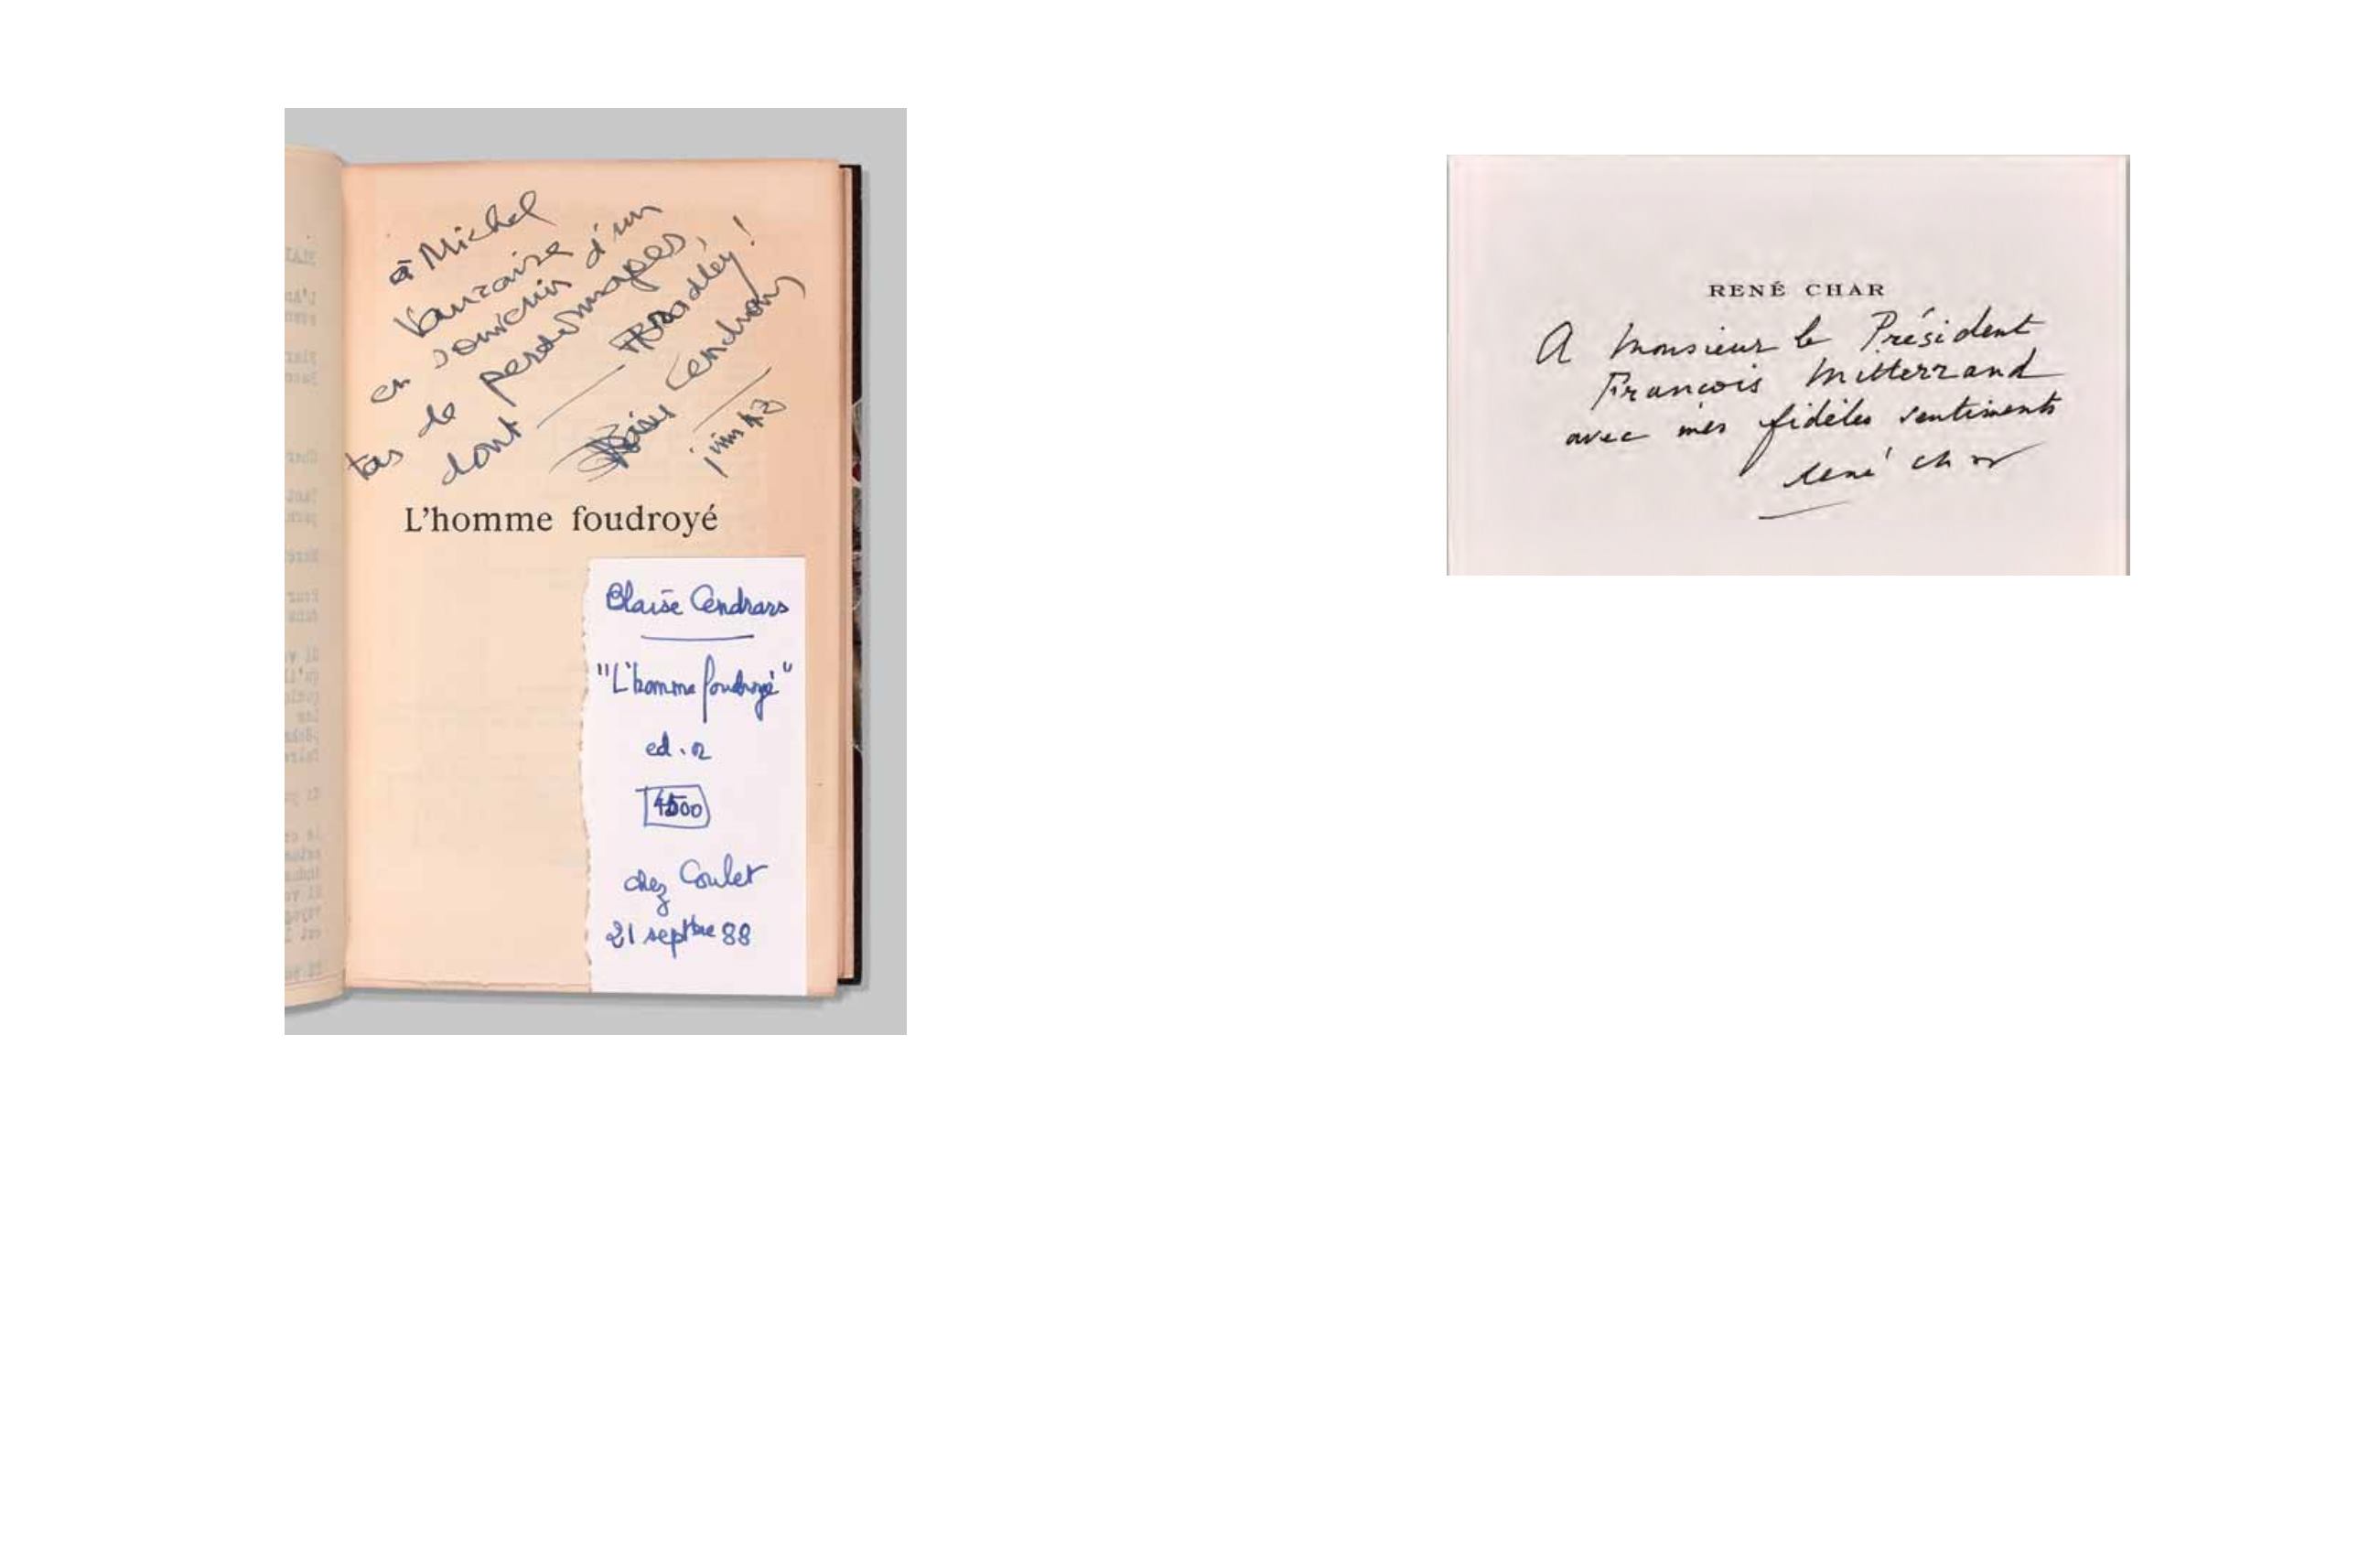 à Michel
Vaucaire
en souvenir d'un
tas de personnages,
dont Bradley!
Blaise Cendrars
L'homme foudroyé
Blaise Cendrars
"L'homme foudroyé"
ed. o2
4500
chez Coulet
21 septbre 88
RENÉ CHAR
A Monsieur le Président
François Mitterrand
avec mes fidèles sentiments
René Char